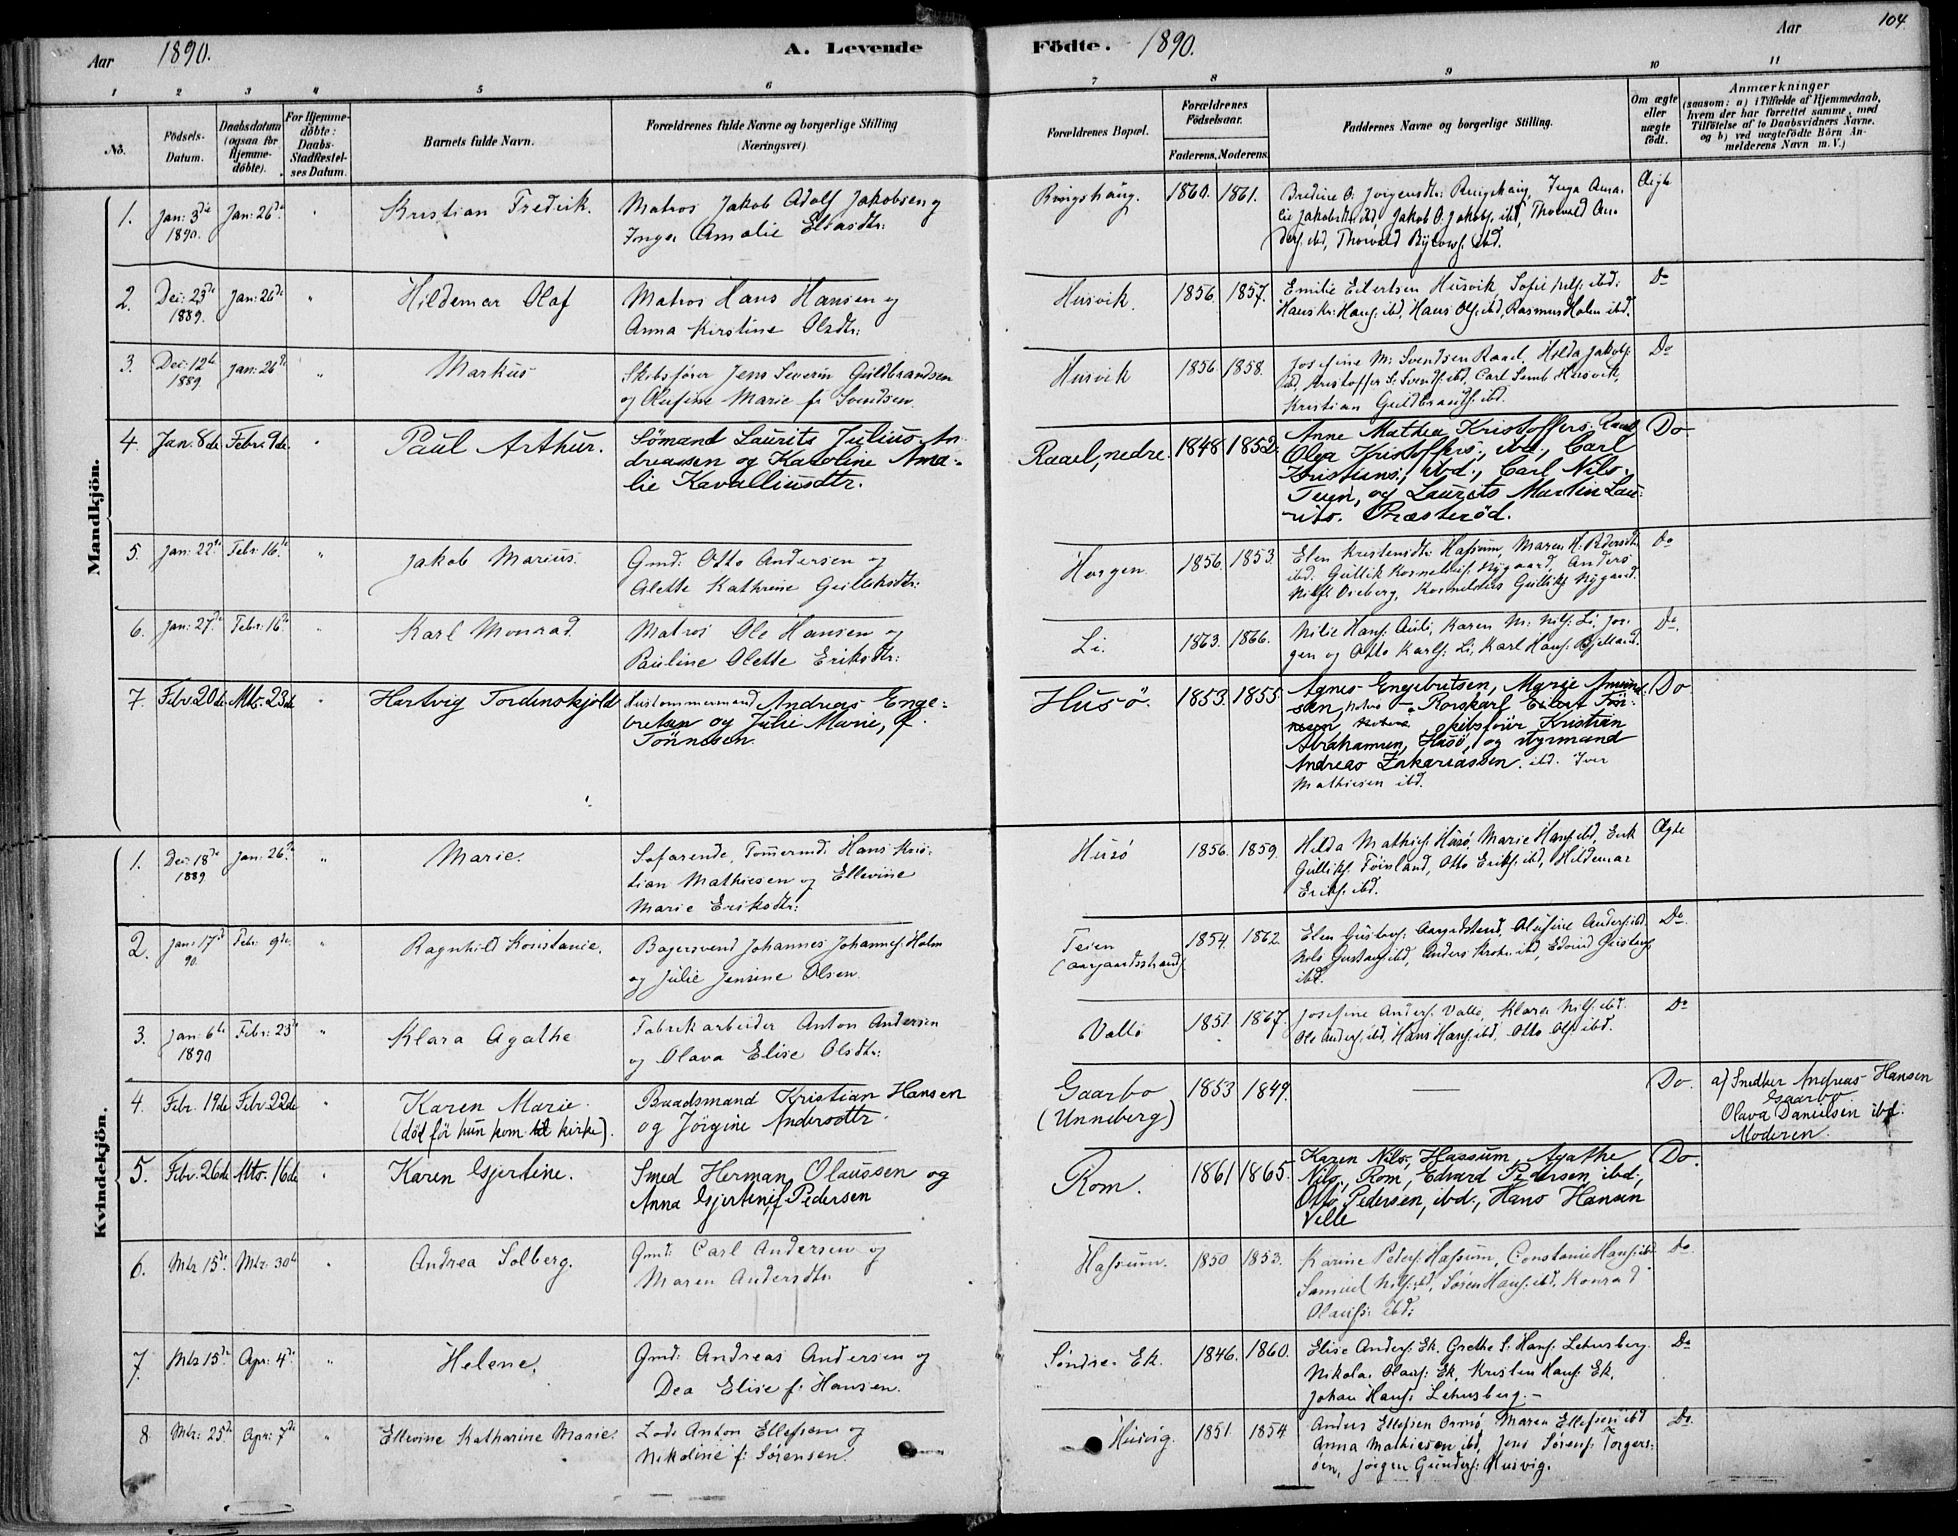 Aar 1890. A. Levende Födte. 1890. Aar 104
1 2 3 4 5 6 7 8 9 10 11
No. Födsels-Datum. Daabsdatum (ogsaa for Hjemmedöbte). For Hjemmedöbte: Daabs-Stadfæstelses Datum. Barnets fulde Navn. Forældrenes fulde Navne og borgerlige Stilling (Næringsvei). Forældrenes Bopæl. Forældrenes Födselsaar. Faderens. Moderens. Faddernes Navne og borgerlige Stilling. Om ægte eller uægte födt. Anmærkninger (saasom: a) i Tilfælde af Hjemmedaab, hvem der har forrettet samme, med Tilföielse af to Daabsvidners Navne, og b) ved uægtefödte Börn Anmelderens Navn m. V.)
Mandkjön.
1. Jan: 3de 1890. Jan: 26de " Kristian Fredrik. Matros Jakob Adolf Jakobsen og
Inga Amalie Eliasdtr: Ringshaug. 1860. 1861. Ægte
Jakob O. Jakobs. ibd, Thorvald An-
ders. ibd, Thorvald ibd.
2. Dec: 23de 1889. Jan: 26de " Hildemar Olaf Matros Hans Hansen og
Anna Kirstine Olsdtr: Husvik. 1856. 1857. Emilie Eilertsen Husvik, Sofie ibd:
Hans Kr: Hans: ibd, Hans Ols: ibd, Rasmus Holm ibd. Do
3. Dec: 12te 1889 Jan: 26de " Markus Skibsfører Jens Severin Guldbrandsen
og Olufine Marie f: Svendsen. Husvik 1856 1858. Josefine M: Svendsen Raael, Hilda Jakobs:
ibd, Kristoffer S: Svends: ibd, Carl Semb Husvik,
Kristian Guldbrands: ibd. Do
4. Jan. 8de Febr. 9de " Paul Arthur. Sömand Laurits Julius An-
dreassen og Karoline Ama-
lie Kavalliusdtr. Raael, nedre. 1848 1852. Anne Mathea Kristoffers. Raael
Olga Kristoffers., ibd., Carl
Kristians., ibd., Carl Nils.
Teien, og Laurits Martin Lau-
rits. Præsteröd. Do
5. Jan: 22de Febr: 16de " Jakob Marius. Gmd: Otto Andersen og
Alette Kathrine Gulliksdtr: Horgen. 1856. 1853. Elen Kristensdtr: Hassum, Maren H: Pedersdtr
ibd. Gullik Kornelius: Nygaard, Anders
Nils: Oseberg, Kornelius Gulliks: Nygaard. Do
6. Jan: 27de Febr: 16de " Karl Monrad. Matros Ole Hansen og
Pauline Olette Eriksdtr: Li. 1863. 1866. Hans: Auli, Karen M: Nils: Li, Jör-
gen og Otto Karls: Li, Karl Hans: Bjelland. Do.
7. Febr 20de Mts. 23de " Hartvig Tordenskjold Andreas Enge-
bretsen og Julie Marie, f.
Tönnesen. Husö. 1853. 1855. Agnes Engebretsen, Marie Amund-
sen, Rorskarl Eilert Tön-
nesen skibsförer Kristian
Abrahamsen, Husö, og styrmand
Andreas Zakariassen. ibd. Iver
Mathiesen ibd. Do
Kvindekjön.
1. Dec: 18de 1889 Jan: 26de " Marie. Søfarende, Tømermd: Hans Kris-
tian Mathiesen og Ellevine
Marie Eriksdtr: Husö 1856. 1859. Hilda Mathies: Husö, Marie Hans: ibd, Erik
Gulliks: Töinland, Otto Eriks: ibd, Hildemar
Eriks: ibd. Ægte
2. Jan: 17de 90. Febr. 9de " Ragnhild Konstanie. Bagersvend Johannes Johannes: Holm
og Julie Jensine Olsen. Teien
(Aargaardsstrand). 1854. 1862. Elen Gustavs: Aasgaardstrand, Olufine Anders: ibd
Nils Gustavs: ibd, Anders ibd, Edvard Gustavs:
ibd. Do.
3. Jan: 6te 1890 Febr: 23de " Klara Agathe Fabrikarbeider Anton Andersen
og Olava Elise Olsdtr: Vallö 1851 1867. Josefine Anders: Vallö, Klara Nils: ibd.
Ole Anders: ibd, Hans Hans: ibd, Otto Ols: ibd. Do
4. Febr. 19de Febr. 22de " Karen Marie.
(död för hun kom til kirke). Baadsmand Kristian Hansen
og Jörgine Andersdtr. Gaarbo
(Unneberg) 1853 1849. — Do. af Snedker Andreas Hansen
Gaarbo
Olava Danielsen ibd.
Moderen.
5. Febr. 26de Mts. 16de " Karen Gjertine. Smed Herman Olaussen og
Anna Gjertine, f Pedersen Rom. 1861 1865. Karen Nils., Hassum, Agathe
Nils., Rom, Edvard Pedersen, ibd.,
Otto Pedersen, ibd., Hans Hansen
Velle Do.
6. Mts 15de Mts. 30te " Andrea Solberg. Gmd: Carl Andersen og
Maren Andersdtr. Hassum. 1850 1853. Karine Peders: Hassum, Constanie Hans: ibd.
Samuel Nils: ibd, Sören Hans: ibd, Konrad
Olaus: ibd: Do.
7. Mts 15de Apr: 4de " Helene. Gmd: Andreas Andersen og
Dea Elise f: Hansen. Söndre Ek. 1846. 1860. Elise Anders: Ek. Grethe S: Hans: Lehnsberg.
Nikolai Olaus: Ek, Kristen Hans: Ek,
Johan Hans: Lehnsberg. – Do
8 Mts: 25de Apr: 7de " Ellevine Katharine Marie. Lods Anton Ellefsen og
Nikoline f: Sörensen. Husvig. 1851. 1854 Anders Ellefsen Ormö, Maren Ellefsen ibd
Anna Mathiesen ibd, Jens Sörens: Torgers-
öen, Jörgen Gunders: Husvig. Do.